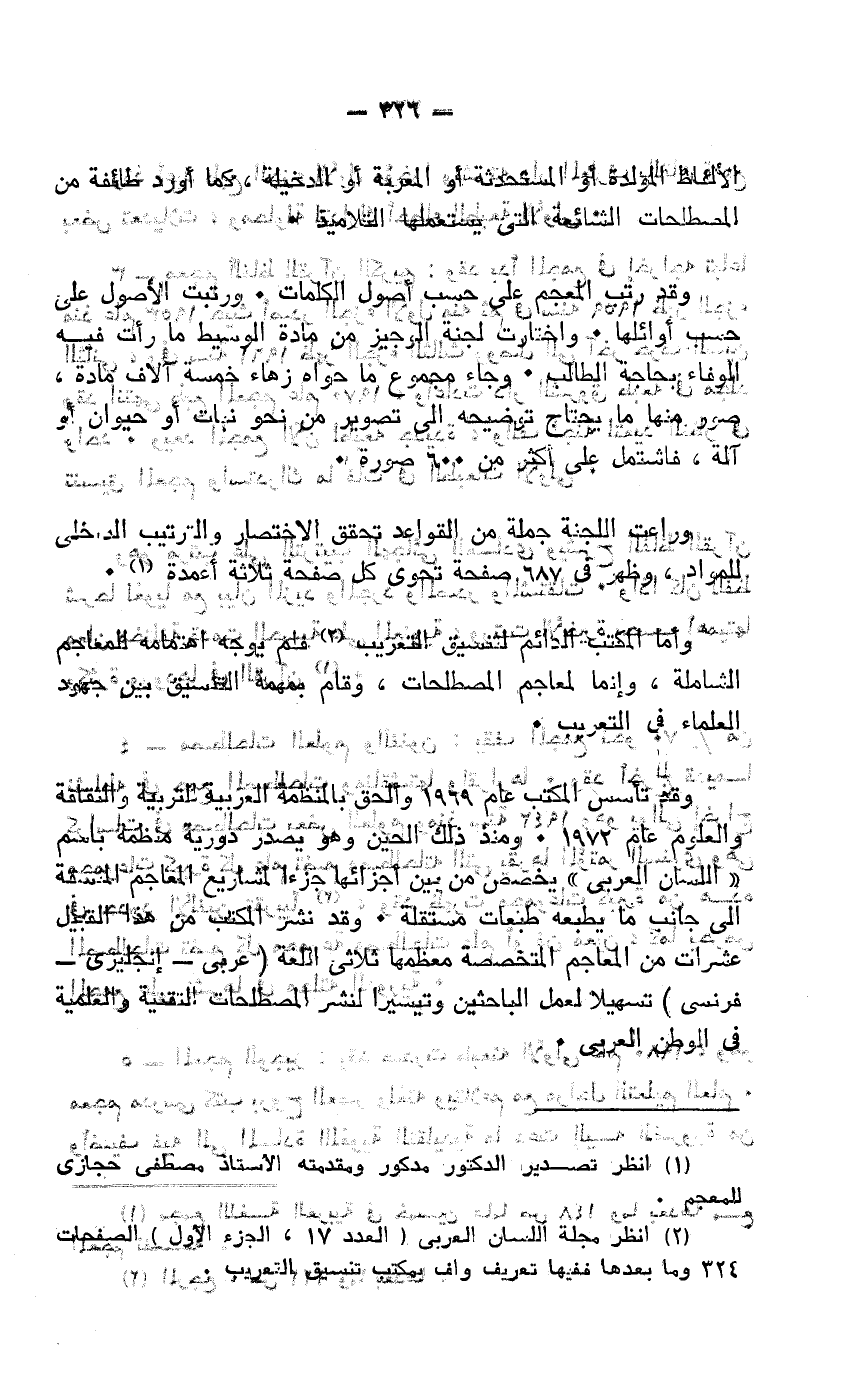 — ٣٢٦ —
الألفاظ المولدة أو المستحدثة أو المعربة أو الدخيلة ، كما أورد طائفة من
المصطلحات الشائعة التى يستعملها التلاميذ •
وقد رتب المعجم على حسب أصول الكلمات • ورتبت الأصول على
حسب أوائلها • واختارت لجنة الوجيز من مادة الوسيط ما رأت فيه
الوفاء بحاجة الطالب • وجاء مجموع ما حواه زهاء خمسة آلاف مادة ،
صور منها ما يحتاج توضيحه الى تصوير من نحو نبات أو حيوان أو
آلة ، فاشتمل على أكثر من ٦٠٠ صورة •
وراعت اللجنة جملة من القواعد تحقق الاختصار والترتيب الداخلى
للمواد ، وظهر فى ٦٨٧ صفحة تحوى كل صفحة ثلاثة أعمدة (١) •
وأما المكتب الدائم لتنسيق التعريب (٢) فلم يوجه اهتمامه للمعاجم
الشاملة ، وإنما لمعاجم المصطلحات ، وقام بمهمة التنسيق بين جهود
العلماء فى التعريب •
وقد تأسس المكتب عام ١٩٦٩ وألحق بالمنظمة العربية للتربية والثقافة
والعلوم عام ١٩٧٢ • ومنذ ذلك الحين وهو يصدر دورية منظمة باسم
« اللسان العربى » يخصص من بين أجزائها جزءا لمشاريع المعاجم المنسقة
الى جانب ما يطبعه طبعات مستقلة • وقد نشر المكتب من هذا القبيل
عشرات من المعاجم المتخصصة معظمها ثلاثى اللغة ( عربى — إنجليزى —
فرنسى ) تسهيلا لعمل الباحثين وتيسيرا لنشر المصطلحات التقنية والعلمية
فى الوطن العربى •
(١) انظر تصدير الدكتور مدكور ومقدمته الاستاذ مصطفى حجازى
للمعجم •
(٢) انظر مجلة اللسان العربى ( العدد ١٧ ، الجزء الأول ) الصفحات
٣٢٤ وما بعدها ففيها تعريف واف بمكتب تنسيق التعريب •